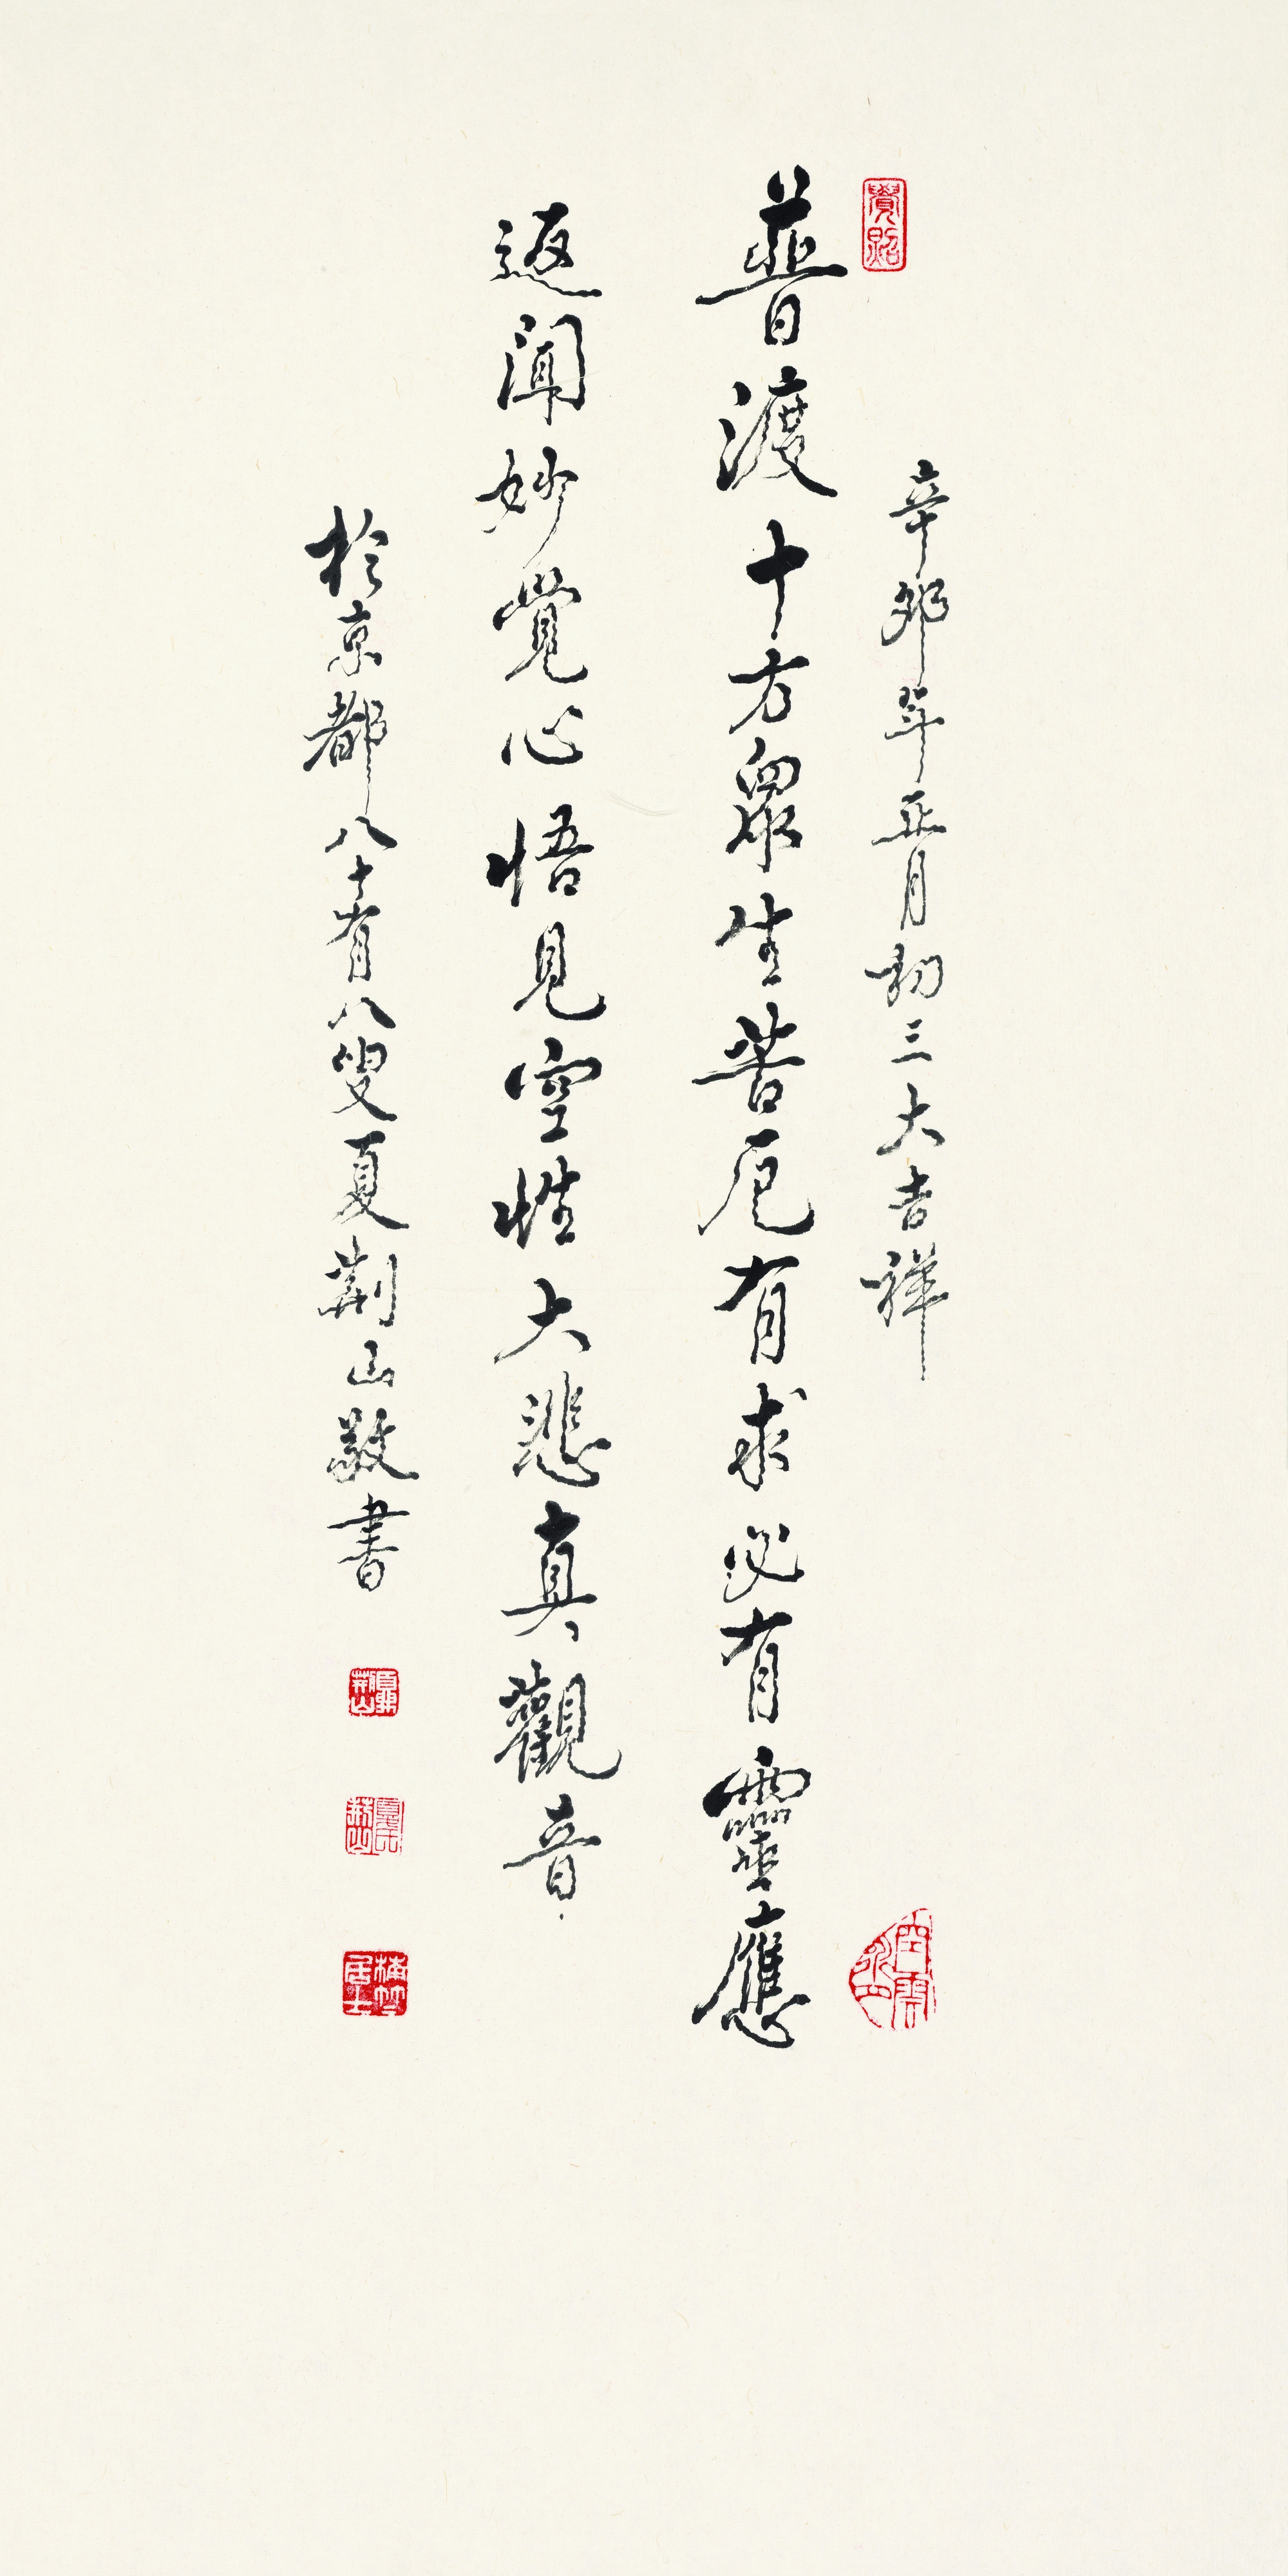 辛卯年正月初三大吉祥
普渡十方眾生苦厄有求必有靈應
返聞妙覺心悟見空性大悲真觀音
於京都八十有八叟夏荆山敬書
夏荆山
梅竹居士